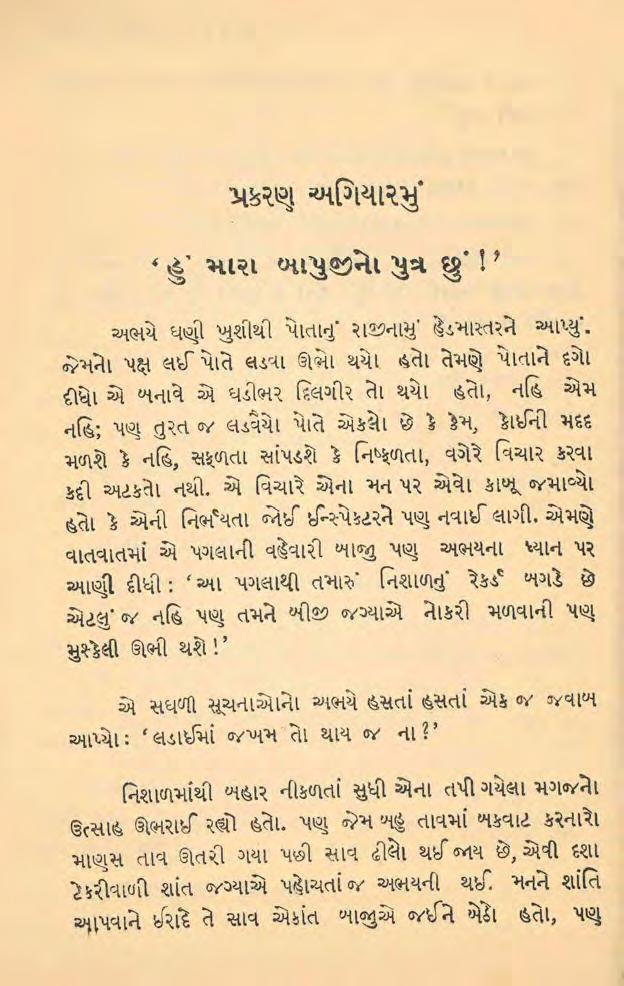 પ્રકરણ અગિયારમું
‘હું મારા બાપુજીનો પુત્ર છું!’
અભયે ઘણી ખુશીથી પોતાનું રાજીનામું હેડમાસ્તરને આપ્યું.
જેમનો પક્ષ લઈ પોતે લડવા ઊભો થયો હતો તેમણે પોતાને દગો
દીધો એ બનાવે એ ઘડીભર દિલગીર તો થયો હતો, નહિ એમ
નહિ; પણ તુરત જ લડવૈયો પોતે એકલો છે કે કેમ, કોઈની મદદ
મળશે કે નહિ, સફળતા સાંપડશે કે નિષ્ફળતા, વગેરે વિચાર કરવા
કદી અટકતો નથી. એ વિચારે એના મન પર એવો કાબૂ જમાવ્યો
હતો કે એની નિર્ભયતા જોઈ ઈન્સ્પેકટરને પણ નવાઈ લાગી. એમણે
વાતવાતમાં એ પગલાની વહેવારી બાજુ પણ અભયના ધ્યાન પર
આણી દીધી : ‘આ પગલાથી તમારું નિશાળનું રેકર્ડ બગડે છે
એટલું જ નહિ પણ તમને બીજી જગ્યાએ નોકરી મળવાની પણ
મુશ્કેલી ઊભી થશે!’
એ સઘળી સૂચનાઓનો અભયે હસતાં હસતાં એક જ જવાબ
આપ્યો : ‘લડાઈમાં જખમ તો થાય જ ના?’
નિશાળમાંથી બહાર નીકળતાં સુધી એના તપી ગયેલા મગજનો
ઉત્સાહ ઊભરાઈ રહ્યો હતો. પણ જેમ બહુ તાવમાં બકવાટ કરનારો
માણસ તાવ ઊતરી ગયા પછી સાવ ઢીલો થઈ જાય છે, એવી દશા
ટેકરીવાળી શાંત જગ્યાએ પહોચતાં જ અભયની થઈ. મનને શાંતિ
આપવાને ઈરાદે તે સાવ એકાંત બાજુએ જઈને બેઠો હતો, પણ